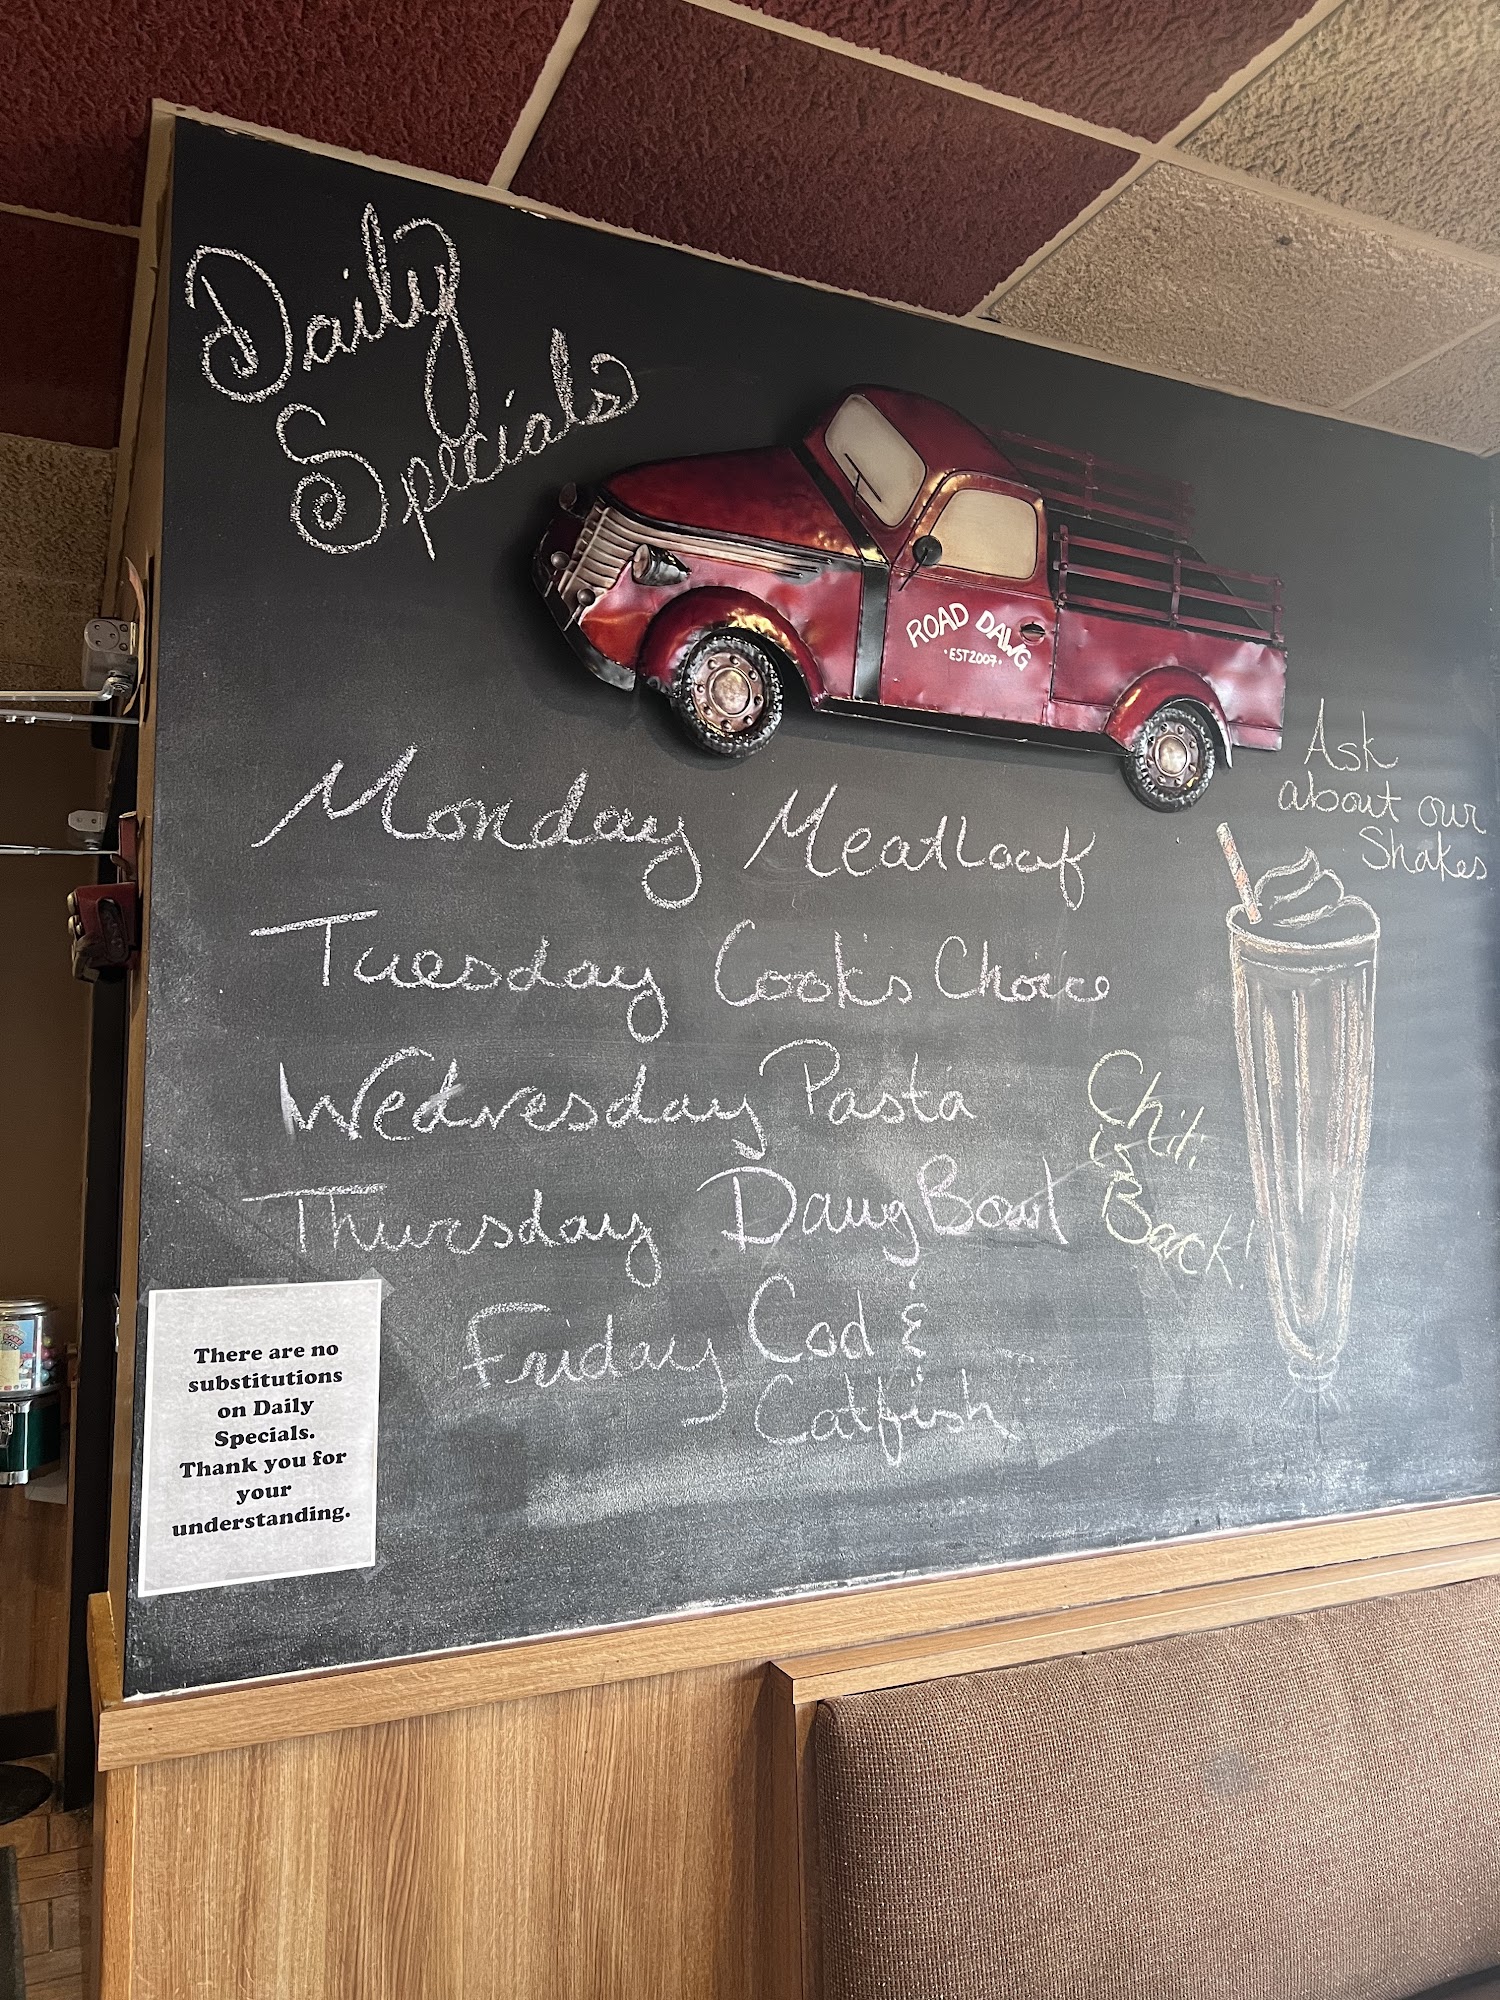 Daily
Specials
ROAD DAWG
·EST 2007·
Ask
about our
Shakes
Monday Meatloaf
Tuesday Cook's Choice
Wednesday Pasta
Thursday Dawg Bowl
Friday Cod &
Catfish
Chili
is
Back!
There are no
substitutions
on Daily
Specials.
Thank you for
your
understanding.